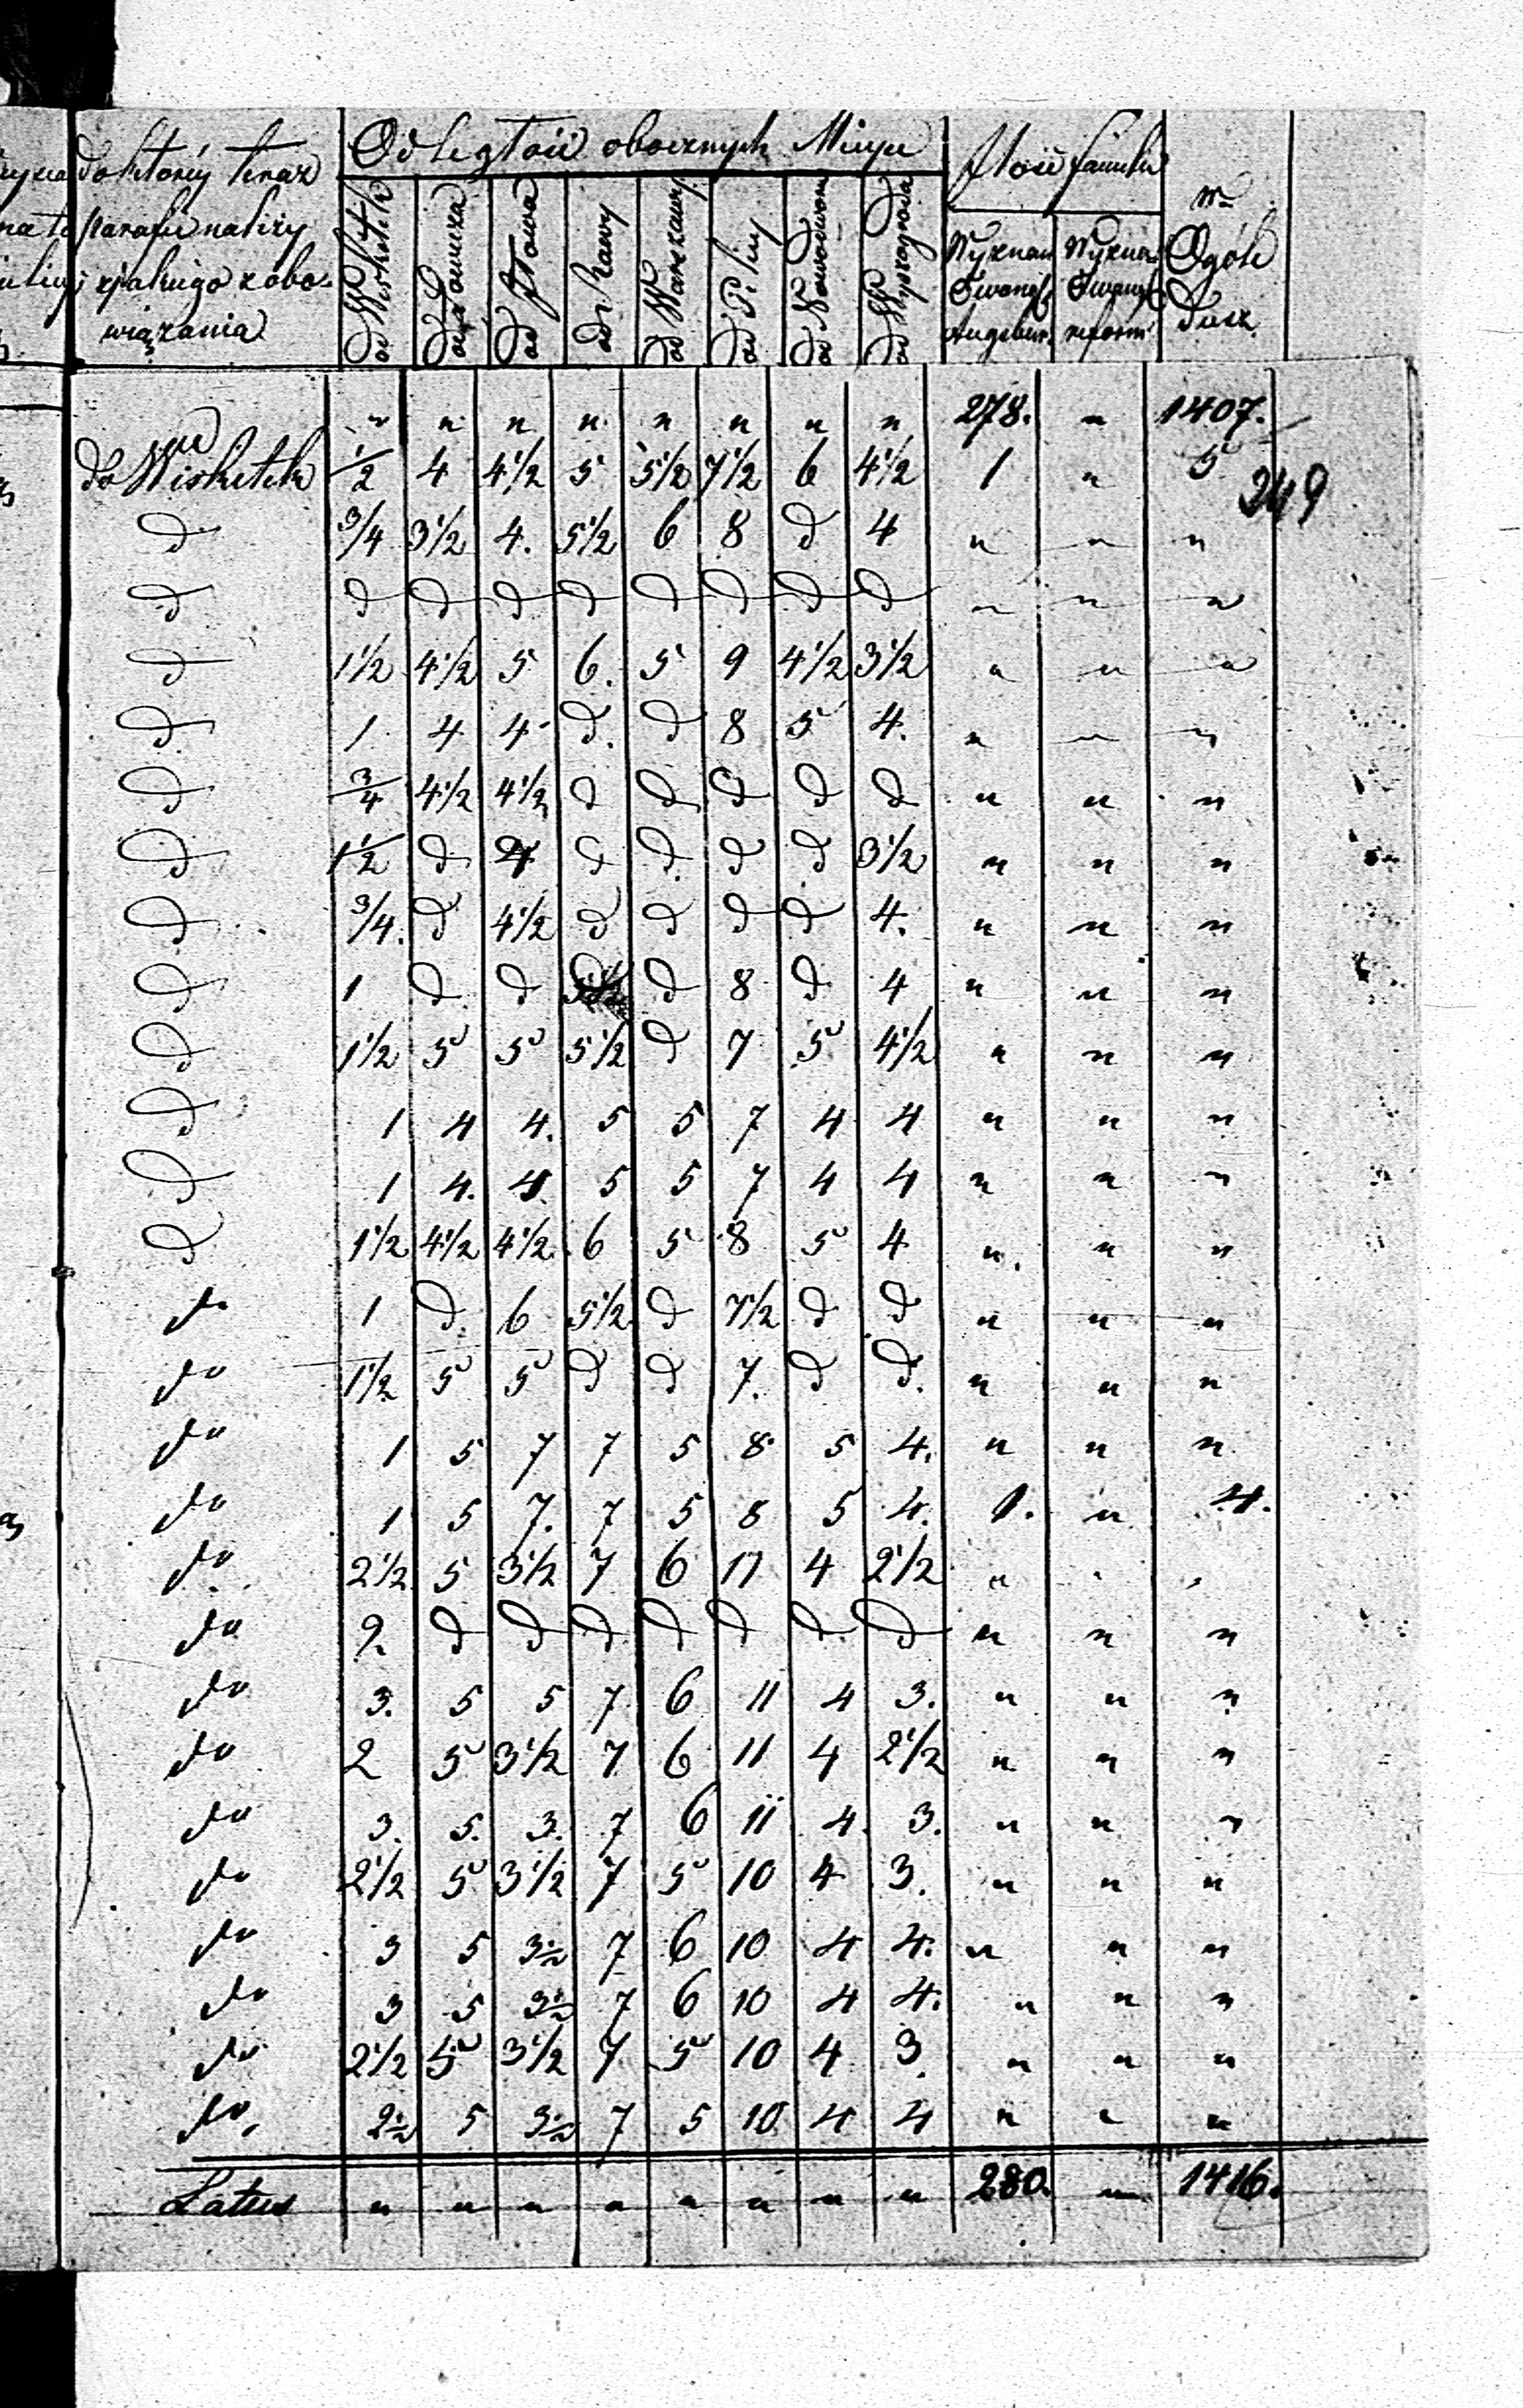 Odległość obocznych Mieysc
Ilość familii
do którey teraz
parafii należy
z jakiego zobo-
wiązania
od Wiskitek
od Łowicza
od Płowa
od Rawy
od Warszawy
od Pilicy
od Nowodworu
od Wyszogroda
Wyznan Ewangel Augsbur.
Wyznan Ewangel reform
w Ogóle Dusz
" " " " " " " " 278. " 1407.
do Wiskitek 1/2 4 4 1/2 5 5 1/2 7 1/2 6 4 1/2 1 " 5
249
d 3/4 3 1/2 4. 5 1/2 6 8 d 4 " " "
d d d d d d d d d " " "
d 1 1/2 4 1/2 5 6. 5 9 4 1/2 3 1/2 " " "
d 1 4 4 d. d 8 5 4. " " "
d 3/4 4 1/2 4 1/2 d d d d d " " "
d 1 1/2 d 4 d d. d d 3 1/2 " " "
d 3/4. d 4 1/2 d d d d 4. " " "
d 1 d d d 8 d 4 " " "
d 1 1/2 5 5 5 1/2 d 7 5 4 1/2 " " "
d 1 4 4. 5 5 7 4 4 " " "
d 1 4. 4. 5 5 7 4 4 " " "
d 1 1/2 4 1/2 4 1/2 6 5 8 5 4 " " "
do 1 d 6 5 1/2 d 7 1/2 d d " " "
do 1 1/2 5 5 d d 7. d d. " " "
do 1 5 7 7 5 8 5 4. " " "
do 1 5 7. 7 5 8 5 4. 1. " 4.
do 2 1/2 5 3 1/2 7 6 11 4 2 1/2 " " "
do 2 d d d d d d d " " "
do 3. 5 5 7 6 11 4 3. " " "
do 2 5 3 1/2 7 6 11 4 2 1/2 " " "
do 3. 5. 3. 7 6 11 4. 3. " " "
do 2 1/2 5 3 1/2 7 5 10 4 3. " " "
do 3 5 3 1/2 7 6 10 4 4. " " "
do 3 5 3 1/2 7 6 10 4 4. " " "
do 2 1/2 5 3 1/2 7 5 10 4 3. " " "
do, 2 1/2 5 3 1/2 7 5 10 4 4 " " "
Latus " " " " " " " " 280. " 1416.